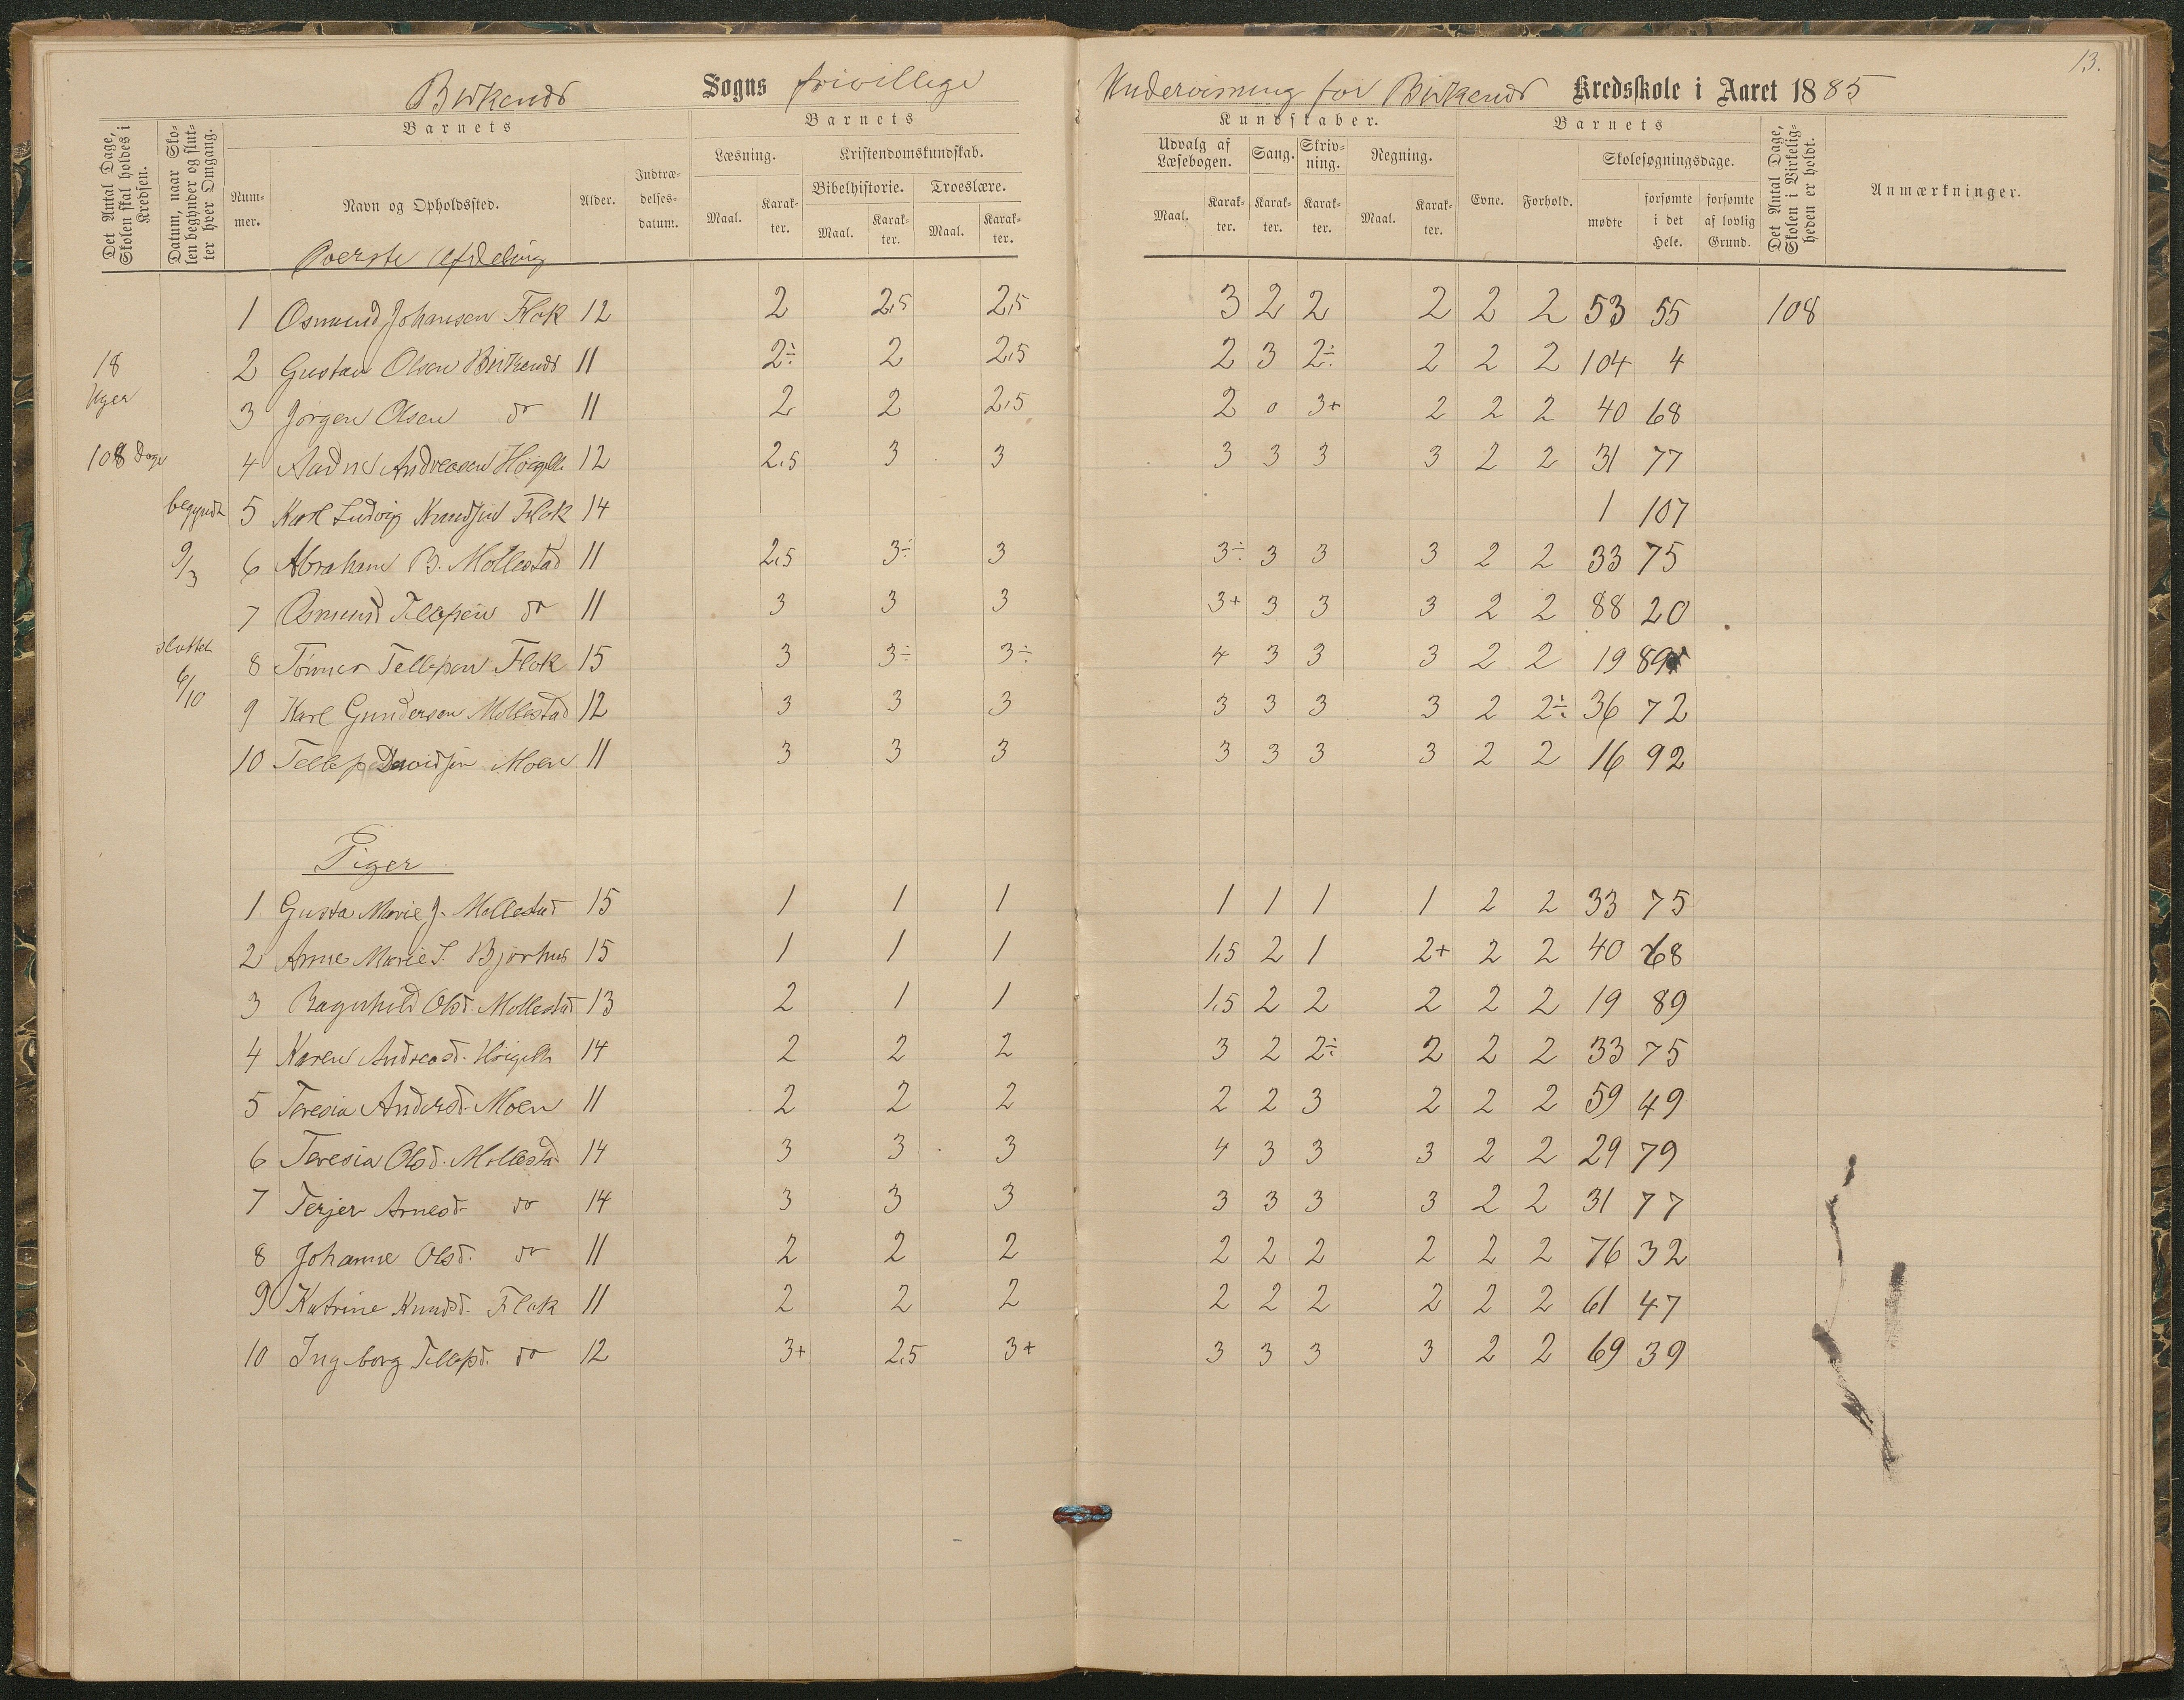 13.
Birkenes Sogns frivillige Undervisning for Birkenes Kredsskole i Aaret 1885
Det Antal Dage, Skolen skal holdes i Kredsen.
Datum, naar Skolen begynder og slutter hver Omgang.
Barnets
Nummer.
Navn og Opholdssted.
Alder.
Indtrædelsesdatum.
Barnets
Læsning.
Maal.
Karakter.
Kristendomskundskab.
Bibelhistorie.
Maal.
Karakter.
Troeslære.
Maal.
Karakter.
Kundskaber.
Udvalg af Læsebogen.
Maal.
Karakter.
Sang.
Karakter.
Skrivning.
Karakter.
Regning.
Maal.
Karakter.
Barnets
Evne.
Forhold.
Skolesøgningsdage.
mødte
forsømte i det Hele.
forsømte af lovlig Grund.
Det Antal Dage, Skolen i Virkeligheden er holdt.
Anmærkninger.
Øverste Afdeling
1 Osmund Johansen Flak 12 2 2,5 2,5 3 2 2 2 2 2 53 55 108
18 2 Gustav Olsen Birkenes 11 2÷ 2 2,5 2 3 2÷ 2 2 2 104 4
Uger
3 Jørgen Olsen do 11 2 2 2,5 2 0 3+ 2 2 2 40 68
108 Dage 4 Andreasen 12 2,5 3 3 3 3 3 3 2 2 31 77
begyndt 5 Karl Ludvig Knudsen Flak 14 1 107
9/3 6 Abraham B. Mollestad 11 2,5 3÷ 3 3÷ 3 3 3 2 2 33 75
7 Osmund Tellefsen do 11 3 3 3 3+ 3 3 3 2 2 88 20
sluttet
8 Tellefsen Flak 15 3 3÷ 3÷ 4 3 3 3 2 2 19 89
6/10
9 Karl Gundersen Mollestad 12 3 3 3 3 3 3 3 2 2÷ 36 72
10 Tellef Davidsen Moen 11 3 3 3 3 3 3 3 2 2 16 92
Piger
1 Gusta Marie J. Mollestad 15 1 1 1 1 1 1 1 2 2 33 75
2 Anne Marie S. Bjorhus 15 1 1 1 1,5 2 1 2+ 2 2 40 68
3 Ragnhild Olsd. Mollestad 13 2 1 1 1,5 2 2 2 2 2 19 89
4 Karen Andreasd. 14 2 2 2 3 2 2÷ 2 2 2 33 75
5 Teresia Andersd. Moen 11 2 2 2 2 2 3 2 2 2 59 49
6 Teresia Olsd. Mollestad 14 3 3 3 4 3 3 3 2 2 29 79
7 Terjer Arnesd. do 14 3 3 3 3 3 3 3 2 2 31 77
8 Johanne Olsd. do 11 2 2 2 2 2 2 2 2 2 76 32
9 Katrine Knudsd. Flak 11 2 2 2 2 2 2 2 2 2 61 47
10 Ingeborg Tellefsd. do 12 3+ 2,5 3+ 3 3 3 3 2 2 69 39